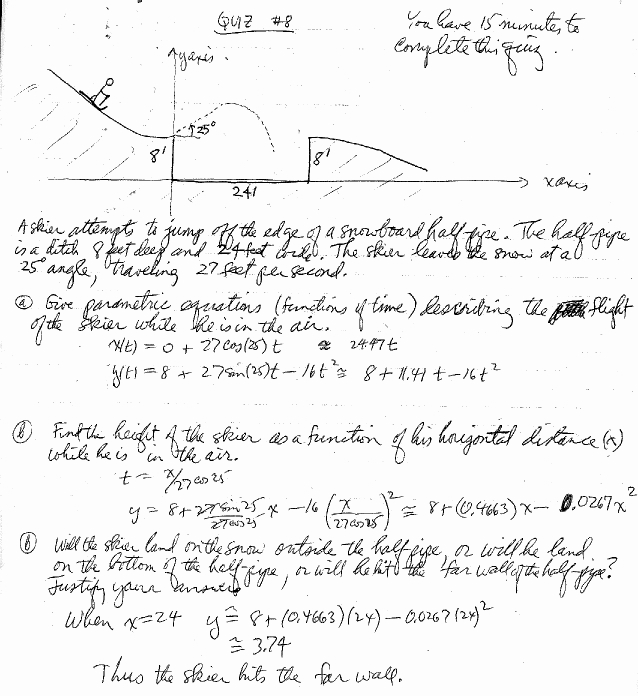 QUIZ #8
You have 15 minutes to
complete this quiz.
yaxis.
25°
8'
8'
24'
x axis
A skier attempts to jump off the edge of a snowboard half-pipe. The half-pipe
is a ditch 8 feet deep and 24 feet wide. The skier leaves the snow at a
25° angle, traveling 27 feet per second.
(a) Give parametric equations (functions of time) describing the flight
of the skier while he is in the air.
x(t) = 0 + 27 cos(25) t ≅ 24.47 t
y(t) = 8 + 27 sin(25) t - 16 t² ≅ 8 + 11.41 t - 16 t²
(b) Find the height of the skier as a function of his horizontal distance (x)
while he is in the air.
t = x/27 cos 25
y = 8 + 27 sin 25/27 cos 25 x - 16 (x/27 cos 25)² ≅ 8 + (0.4663) x - 0.0267 x²
(b) Will the skier land on the snow outside the half-pipe, or will he land
on the bottom of the half-pipe, or will he hit the far wall of the half-pipe?
Justify your answer.
When x = 24 y ≅ 8 + (0.4663)(24) - 0.0267 (24)²
≅ 3.74
Thus the skier hits the far wall.